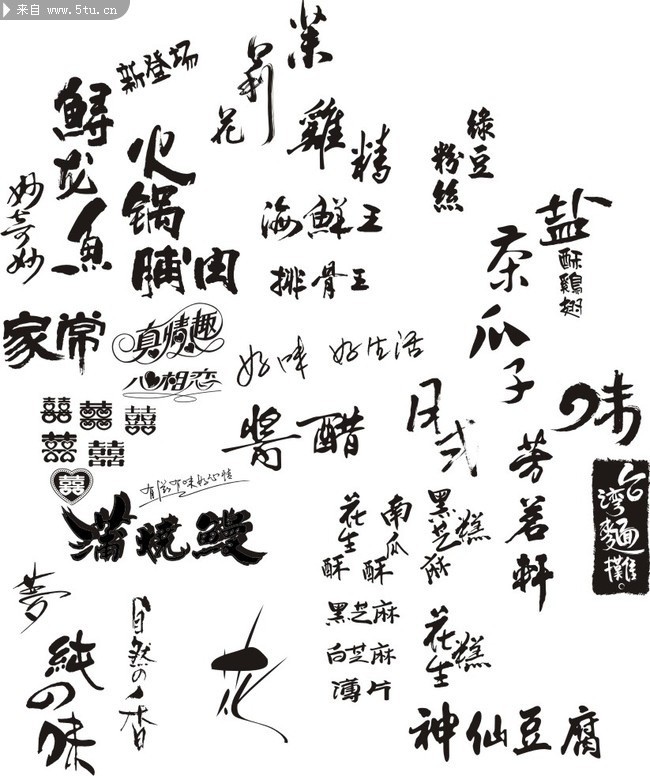 来自 www.5tu.cn
新登场
茉
莉
花
鲟龙鱼
火锅
脯肉
妙奇妙
雞精
绿豆
粉絲
海鮮王
排骨王
盐
酥鷄翅
茶瓜子
家常
真情趣
心相恋
好味 好生活
味
囍 囍 囍
囍 囍
囍
醬醋
日式
芳茗軒
有滋有味好心情
蒲燒鰻
花生酥
南瓜酥
黑芝麻糕
台灣麵攤
夢
純の味
自然の香
花
黑芝麻
白芝麻
薄片
花生糕
神仙豆腐